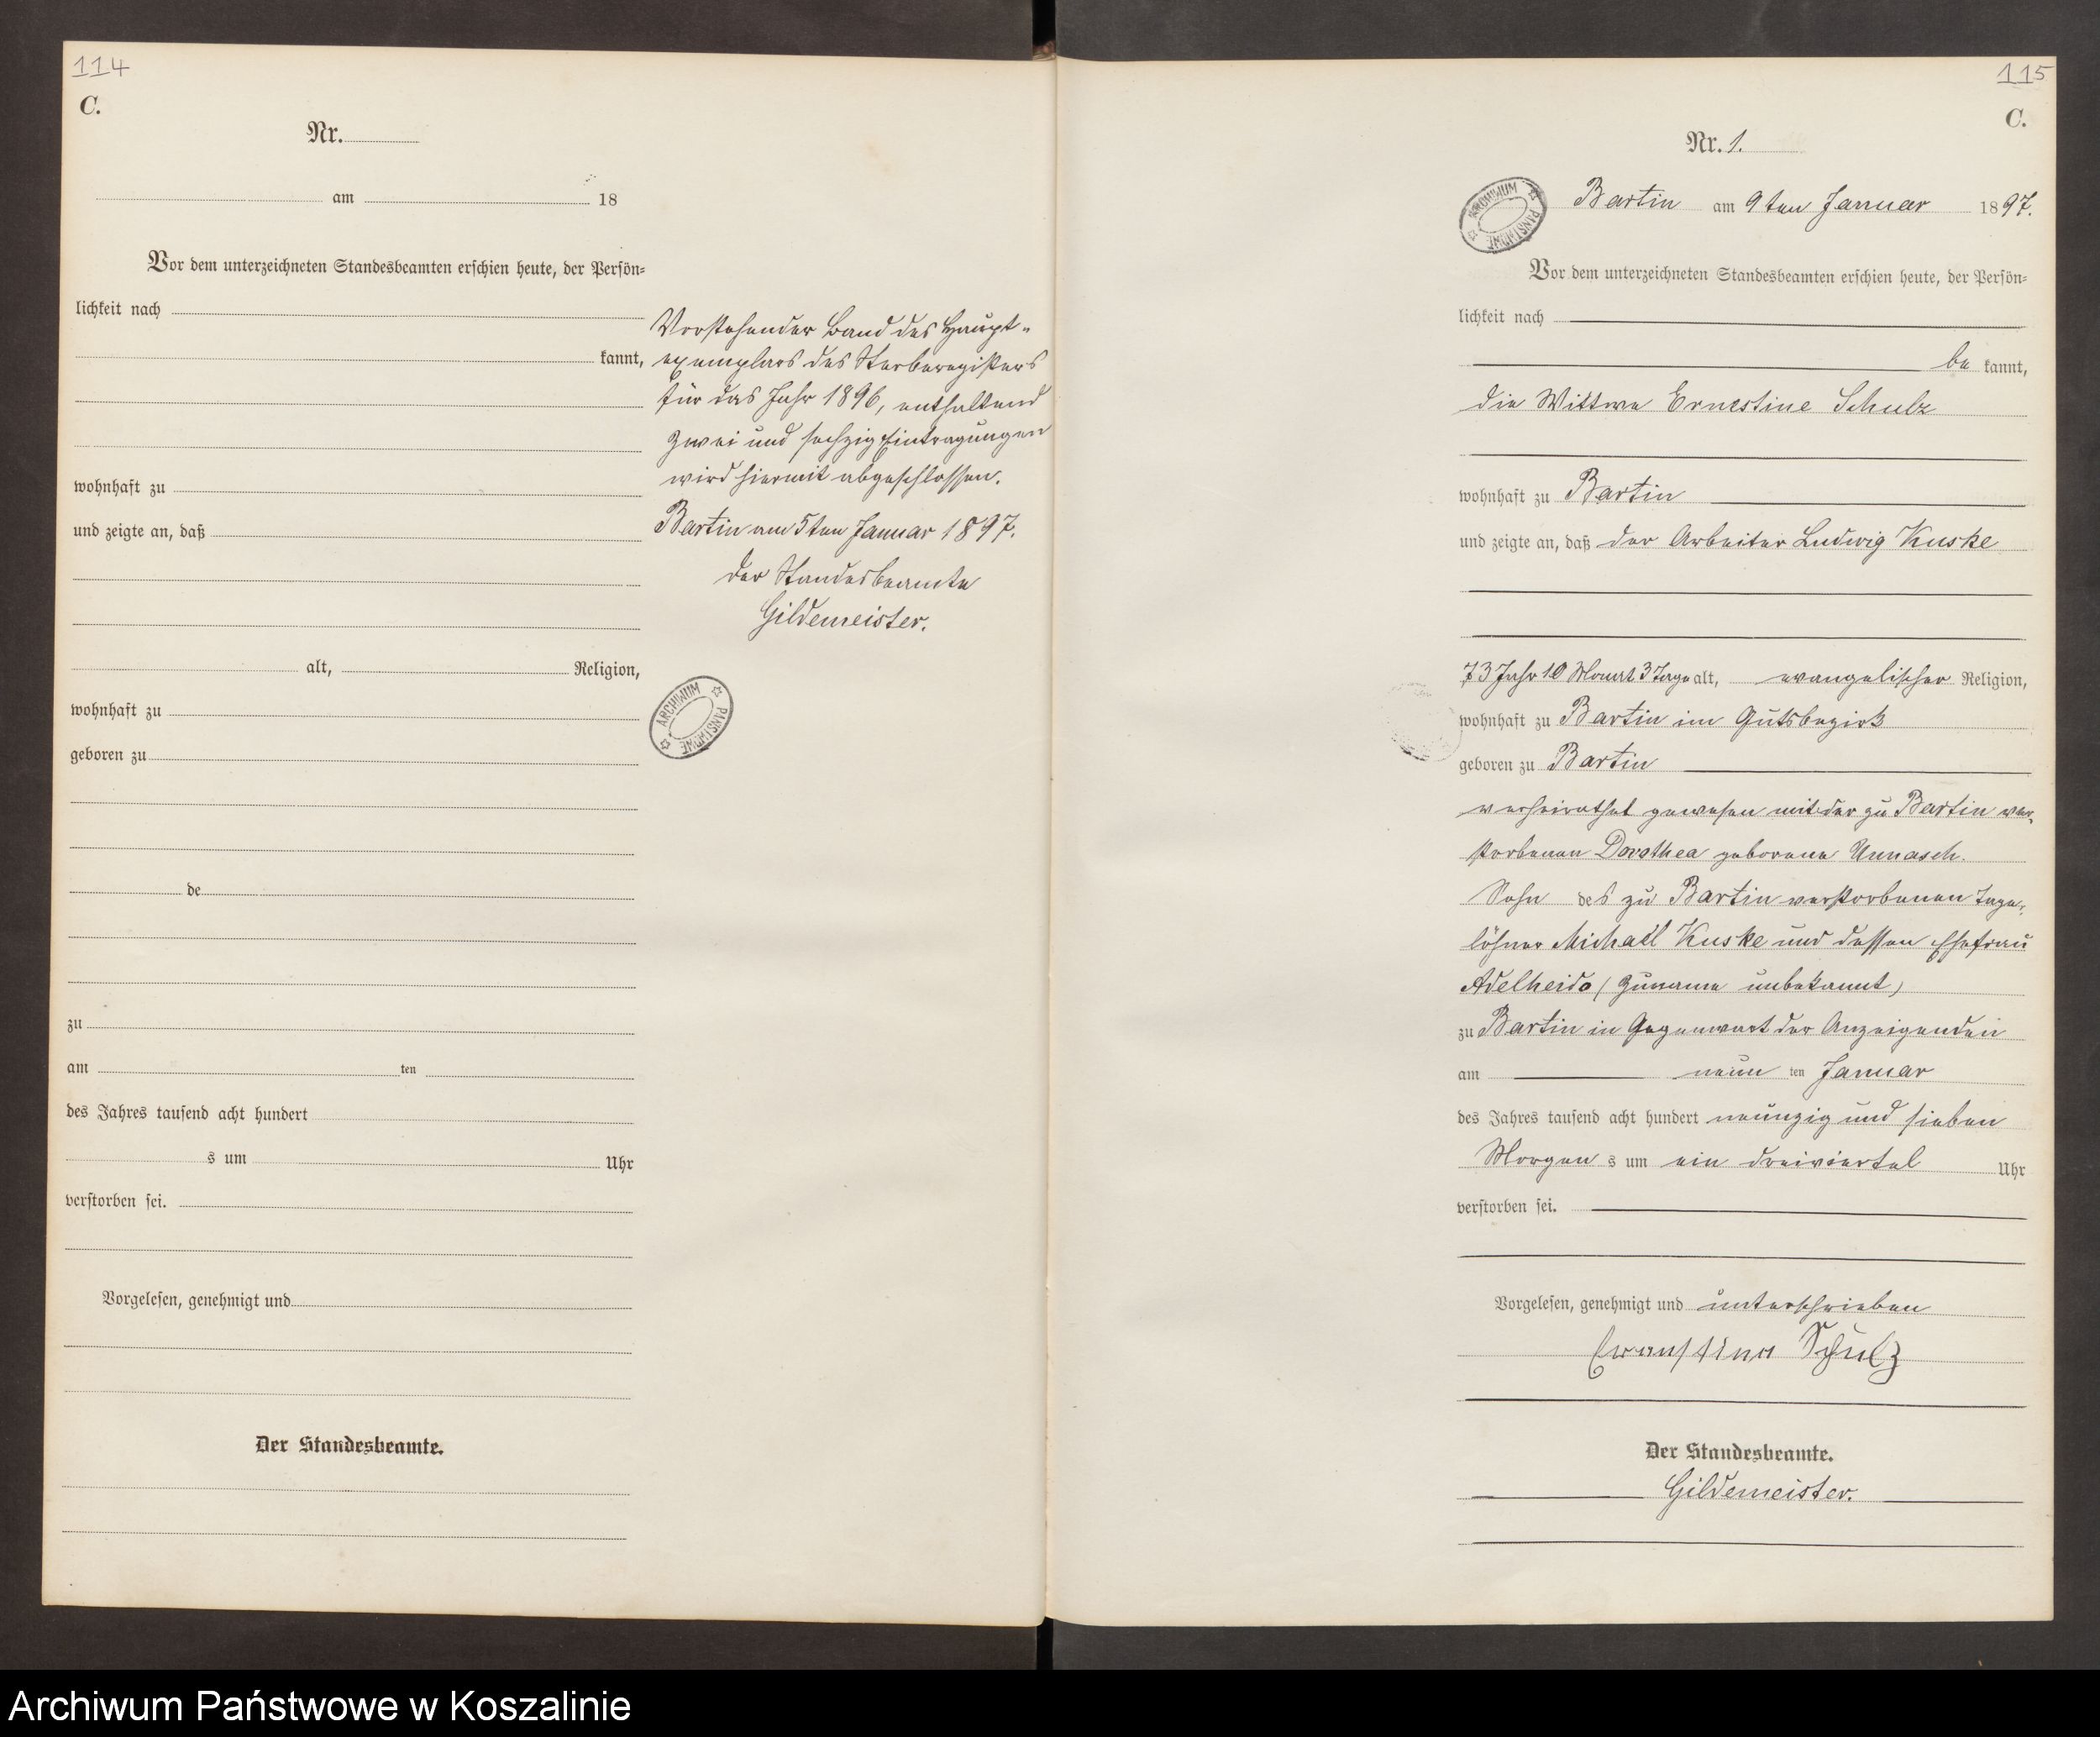 114
C.
Nr.
am 18
Vor dem unterzeichneten Standesbeamten erschien heute, der Persön=
lichkeit nach
kannt,
wohnhaft zu
und zeigte an, daß
alt, Religion,
wohnhaft zu
geboren zu
de
zu
am ten
des Jahres tausend acht hundert
s um Uhr
verstorben sei.
Vorgelesen, genehmigt und
Der Standesbeamte.
Vorstehender Band des Haupt-
exemplars des Sterberegisters
für das Jahr 1896, enthaltend
zwei und sechzig Eintragungen
wird hiermit abgeschlossen.
Bartin am 5ten Januar 1897.
Der Standesbeamte
Gildemeister.
ARCHIWUM PAŃSTWOWE
115
C.
Nr. 1.
ARCHIWUM PAŃSTWOWE
Bartin am 9ten Januar 1897.
Vor dem unterzeichneten Standesbeamten erschien heute, der Persön=
lichkeit nach
be kannt,
die Wittwe Ernestine Schulz
wohnhaft zu Bartin
und zeigte an, daß der Arbeiter Ludwig Kuske
73 Jahr 10 Monat 3 Tage alt, evangelischer Religion,
wohnhaft zu Bartin im Gutsbezirk
geboren zu Bartin
verheirathet gewesen mit der zu Bartin ver-
storbenen Dorothea geborene Unnasch.
Sohn des zu Bartin verstorbenen Tage-
löhner Michael Kuske und dessen Ehefrau
Adelheid (Zuname unbekannt)
zu Bartin in Gegenwart der Anzeigenden
am neun ten Januar
des Jahres tausend acht hundert neunzig und sieben
Morgen s um ein dreiviertel Uhr
verstorben sei.
Vorgelesen, genehmigt und unterschrieben
Ernestine Schulz
Der Standesbeamte.
Gildemeister.
Archiwum Państwowe w Koszalinie